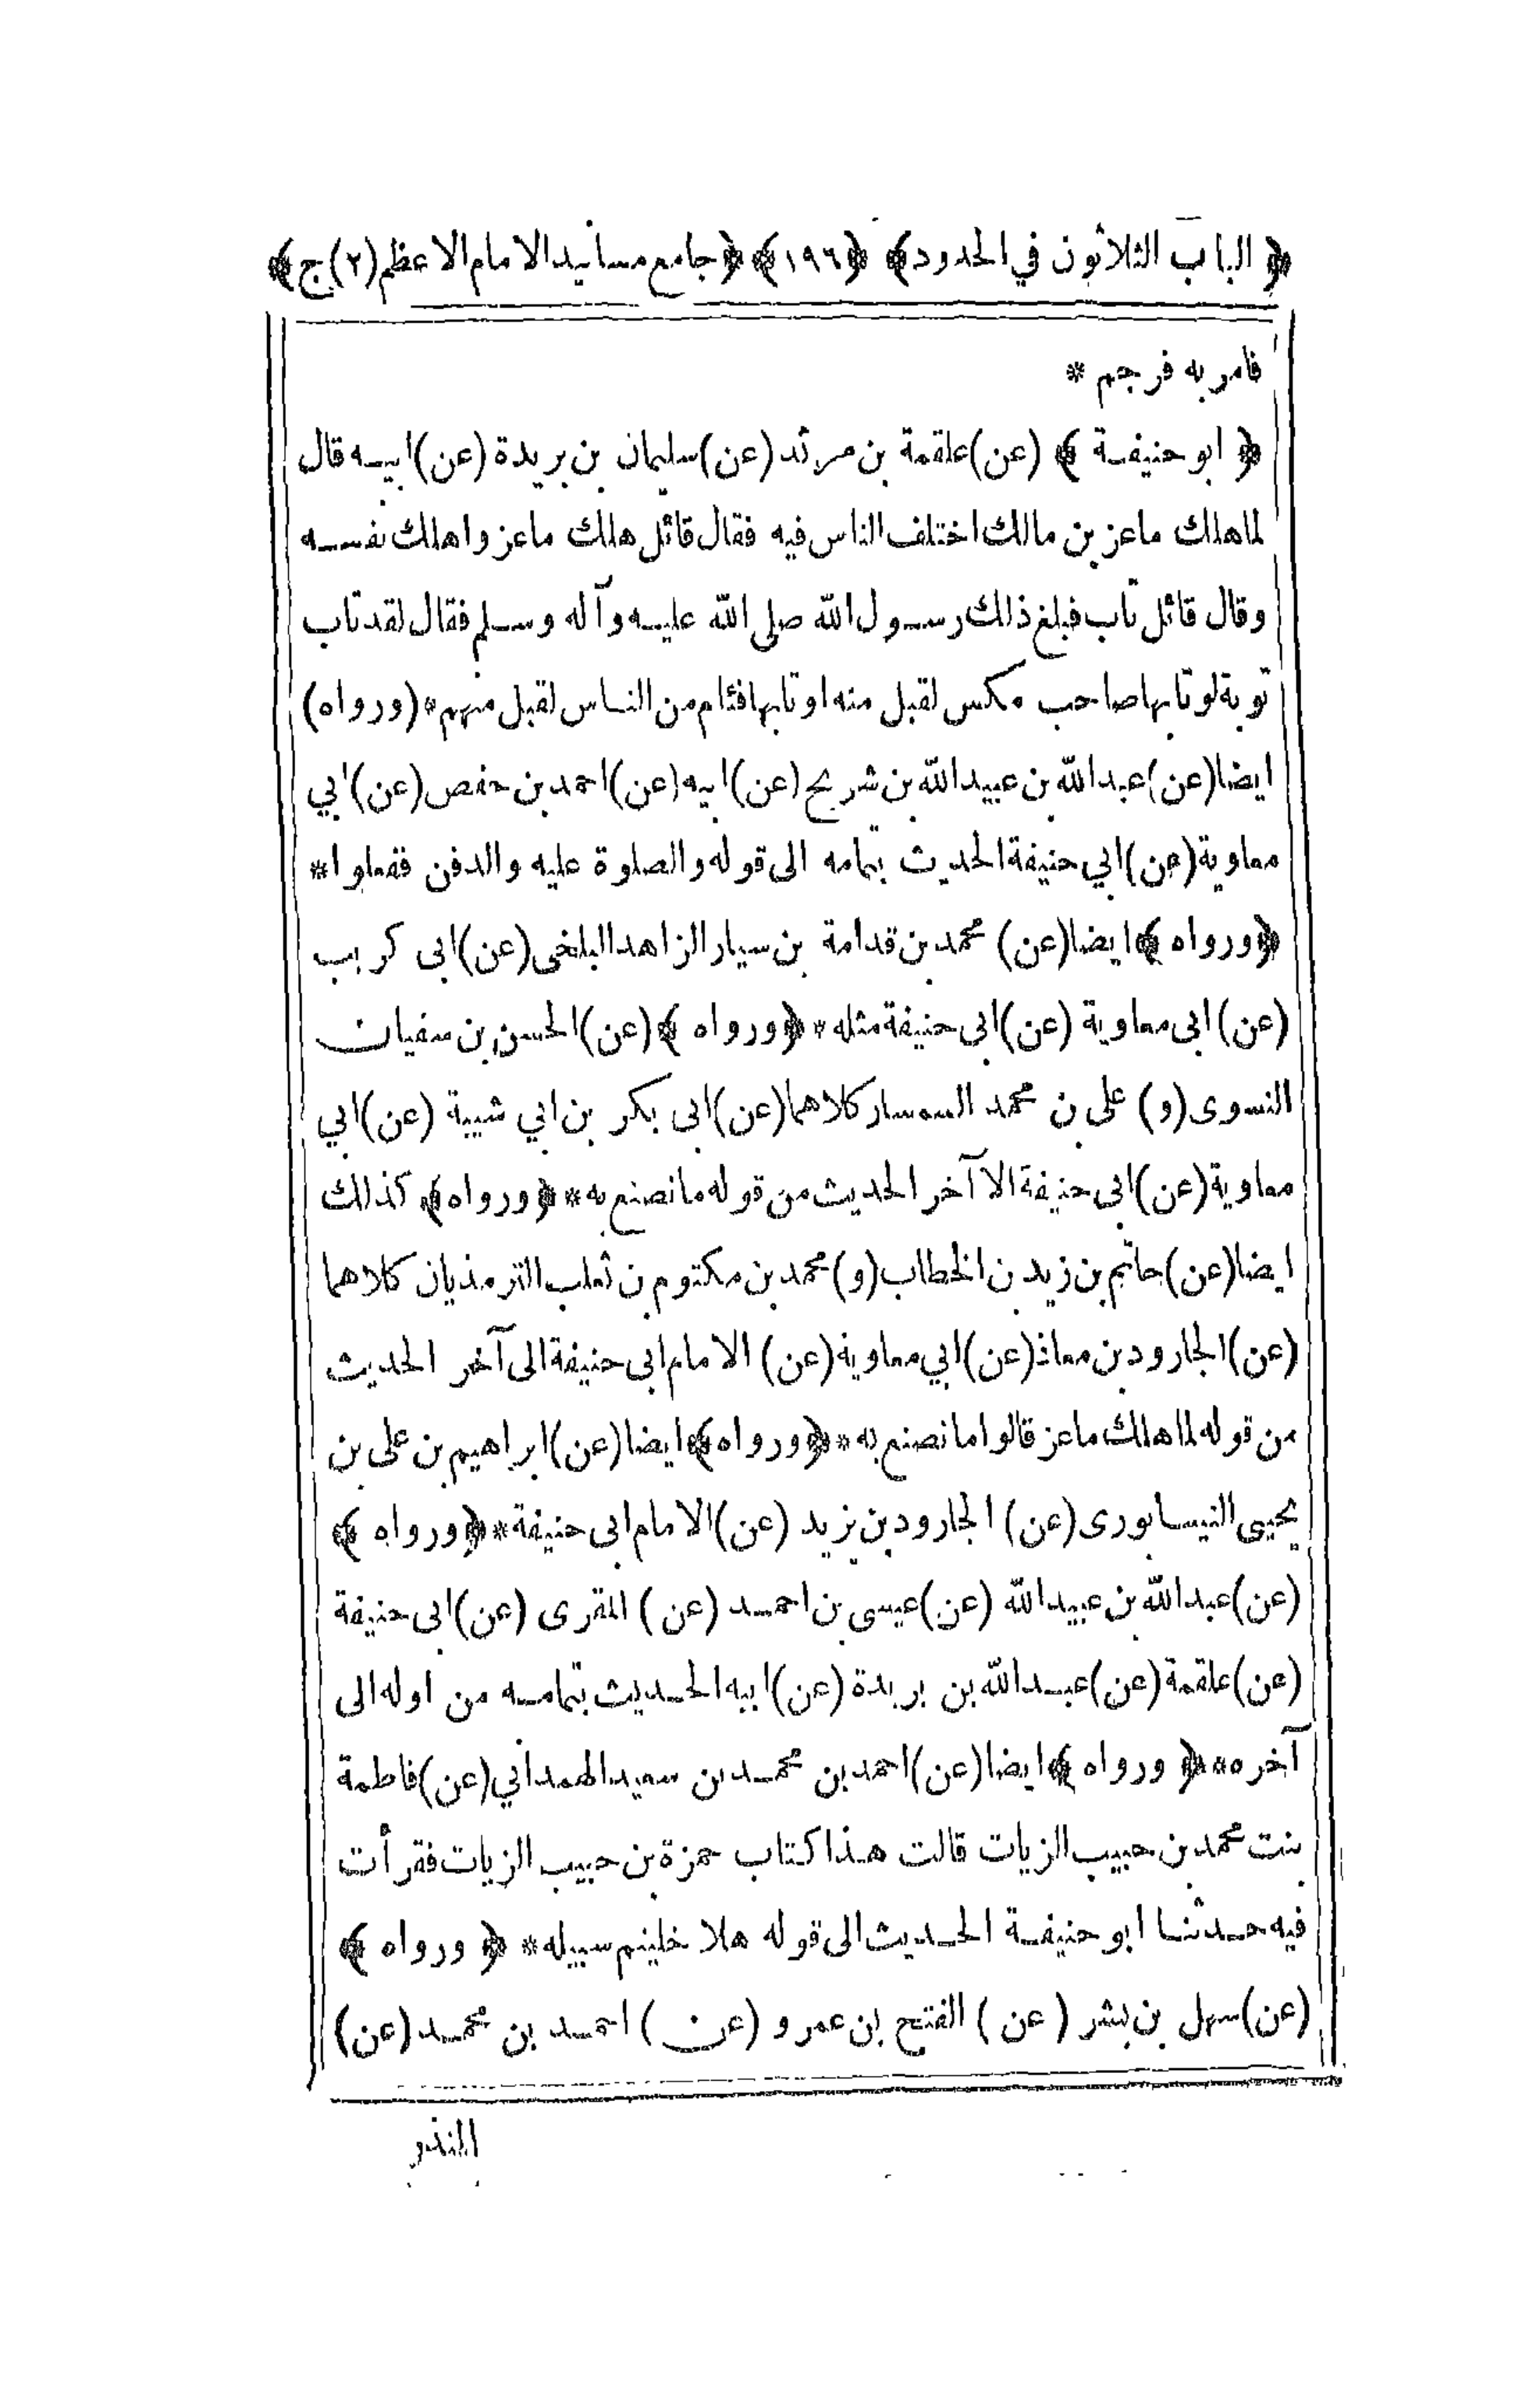 ﴿ الباب الثلاثون في الحدود﴾ ﴿١٩٦﴾ ﴿جامع مسانيد الامام الاعظم(٢)ج﴾
فامر به فرجم *
﴿ ابو حنيفة ﴾ (عن)علقمة بن مرثد(عن)سليمان بن بريدة(عن)ابيه قال
لما هلك ماعز بن مالك اختلف الناس فيه فقال قائل هلك ماعز واهلك نفسه
وقال قائل تاب فبلغ ذلك رسول الله صلى الله عليه وآله وسلم فقال لقد تاب
توبة لو تابها صاحب مكس لقبل منه او تابها فئام من الناس لقبل منهم*(ورواه)
ايضا(عن)عبدالله بن عبيدالله بن شريح(عن)ابيه(عن)احمد بن حفص(عن)ابي
معاوية(عن)ابي حنيفة الحديث بتمامه الى قوله والصلوة عليه والدفن ففعلوا*
﴿ورواه﴾ايضا(عن) محمد بن قدامة بن سيار الزاهد البلخى(عن)ابى كريب
(عن)ابى معاوية (عن)ابى حنيفة مثله*﴿ورواه ﴾(عن)الحسن بن سفيان
النسوى(و) على بن محمد السمسار كلاهما(عن)ابى بكر بن ابي شيبة (عن)ابي
معاوية(عن)ابى حنيفة الا آخر الحديث من قوله ما نصنع به*﴿ورواه﴾ كذلك
ايضا(عن)حاتم بن زيد بن الخطاب(و)محمد بن مكتوم بن ثعلب الترمذيان كلاهما
(عن)الجارود بن معاذ(عن)ابي معاوية(عن) الامام ابى حنيفة الى آخر الحديث
من قوله لما هلك ماعز قالوا ما نصنع به*﴿ورواه﴾ايضا(عن)ابراهيم بن على بن
يحيى النيسابورى(عن) الجارود بن يزيد (عن)الامام ابى حنيفة*﴿ورواه ﴾
(عن)عبدالله بن عبيدالله (عن)عيسى بن احمد (عن) المقرى (عن)ابى حنيفة
(عن)علقمة(عن)عبدالله بن بريدة(عن)ابيه الحديث بتمامه من اوله الى
آخره*﴿ ورواه ﴾ايضا(عن)احمد بن محمد بن سعيد الهمداني(عن)فاطمة
بنت محمد بن حبيب الزيات قالت هذا كتاب حمزة بن حبيب الزيات فقرأت
فيه حدثنا ابو حنيفة الحديث الى قوله هلا خليتم سبيله* ﴿ ورواه ﴾
(عن)سهل بن بشر (عن) الفتح بن عمرو (عن) احمد بن محمد(عن)
المنذر